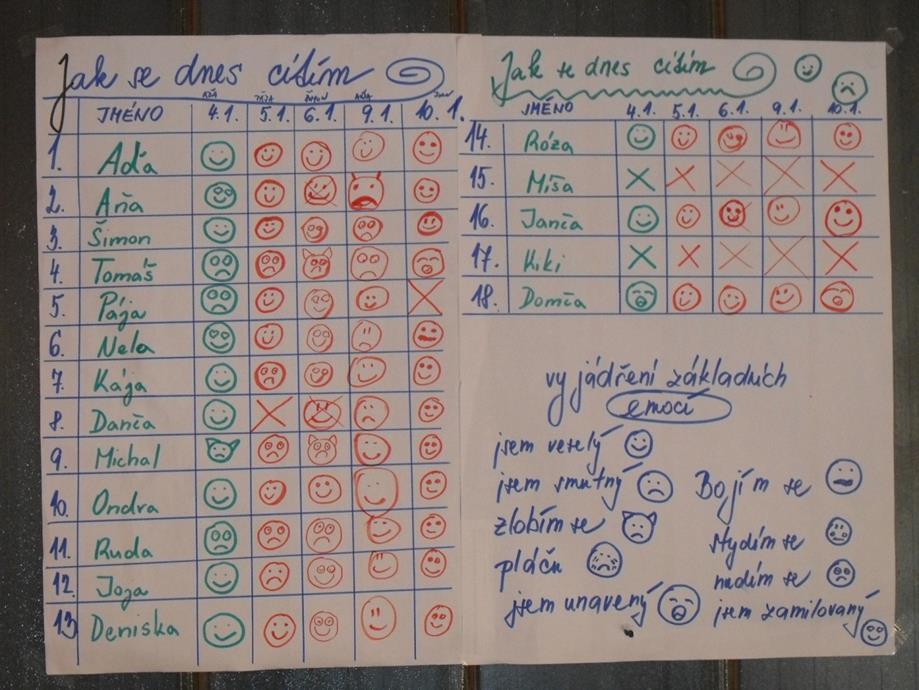 Jak se dnes cítím
JMÉNO 4.1. 5.1. 6.1. 9.1. 10.1.
1. Aďa
2. Áňa
3. Šimon
4. Tomáš
5. Pája
6. Nela
7. Kája
8. Danča
9. Michal
10. Ondra
11. Ruda
12. Joga
13 Deniska
Jak se dnes cítím
JMÉNO 4.1. 5.1. 6.1. 9.1. 10.1.
14. Róza
15. Míša
16. Janča
17. Kiki
18. Domča
vyjádření základních
emocí
jsem veselý
jsem smutný
zlobím se
pláču
jsem unavený
Bojím se
stydím se
nudím se
jsem zamilovaný